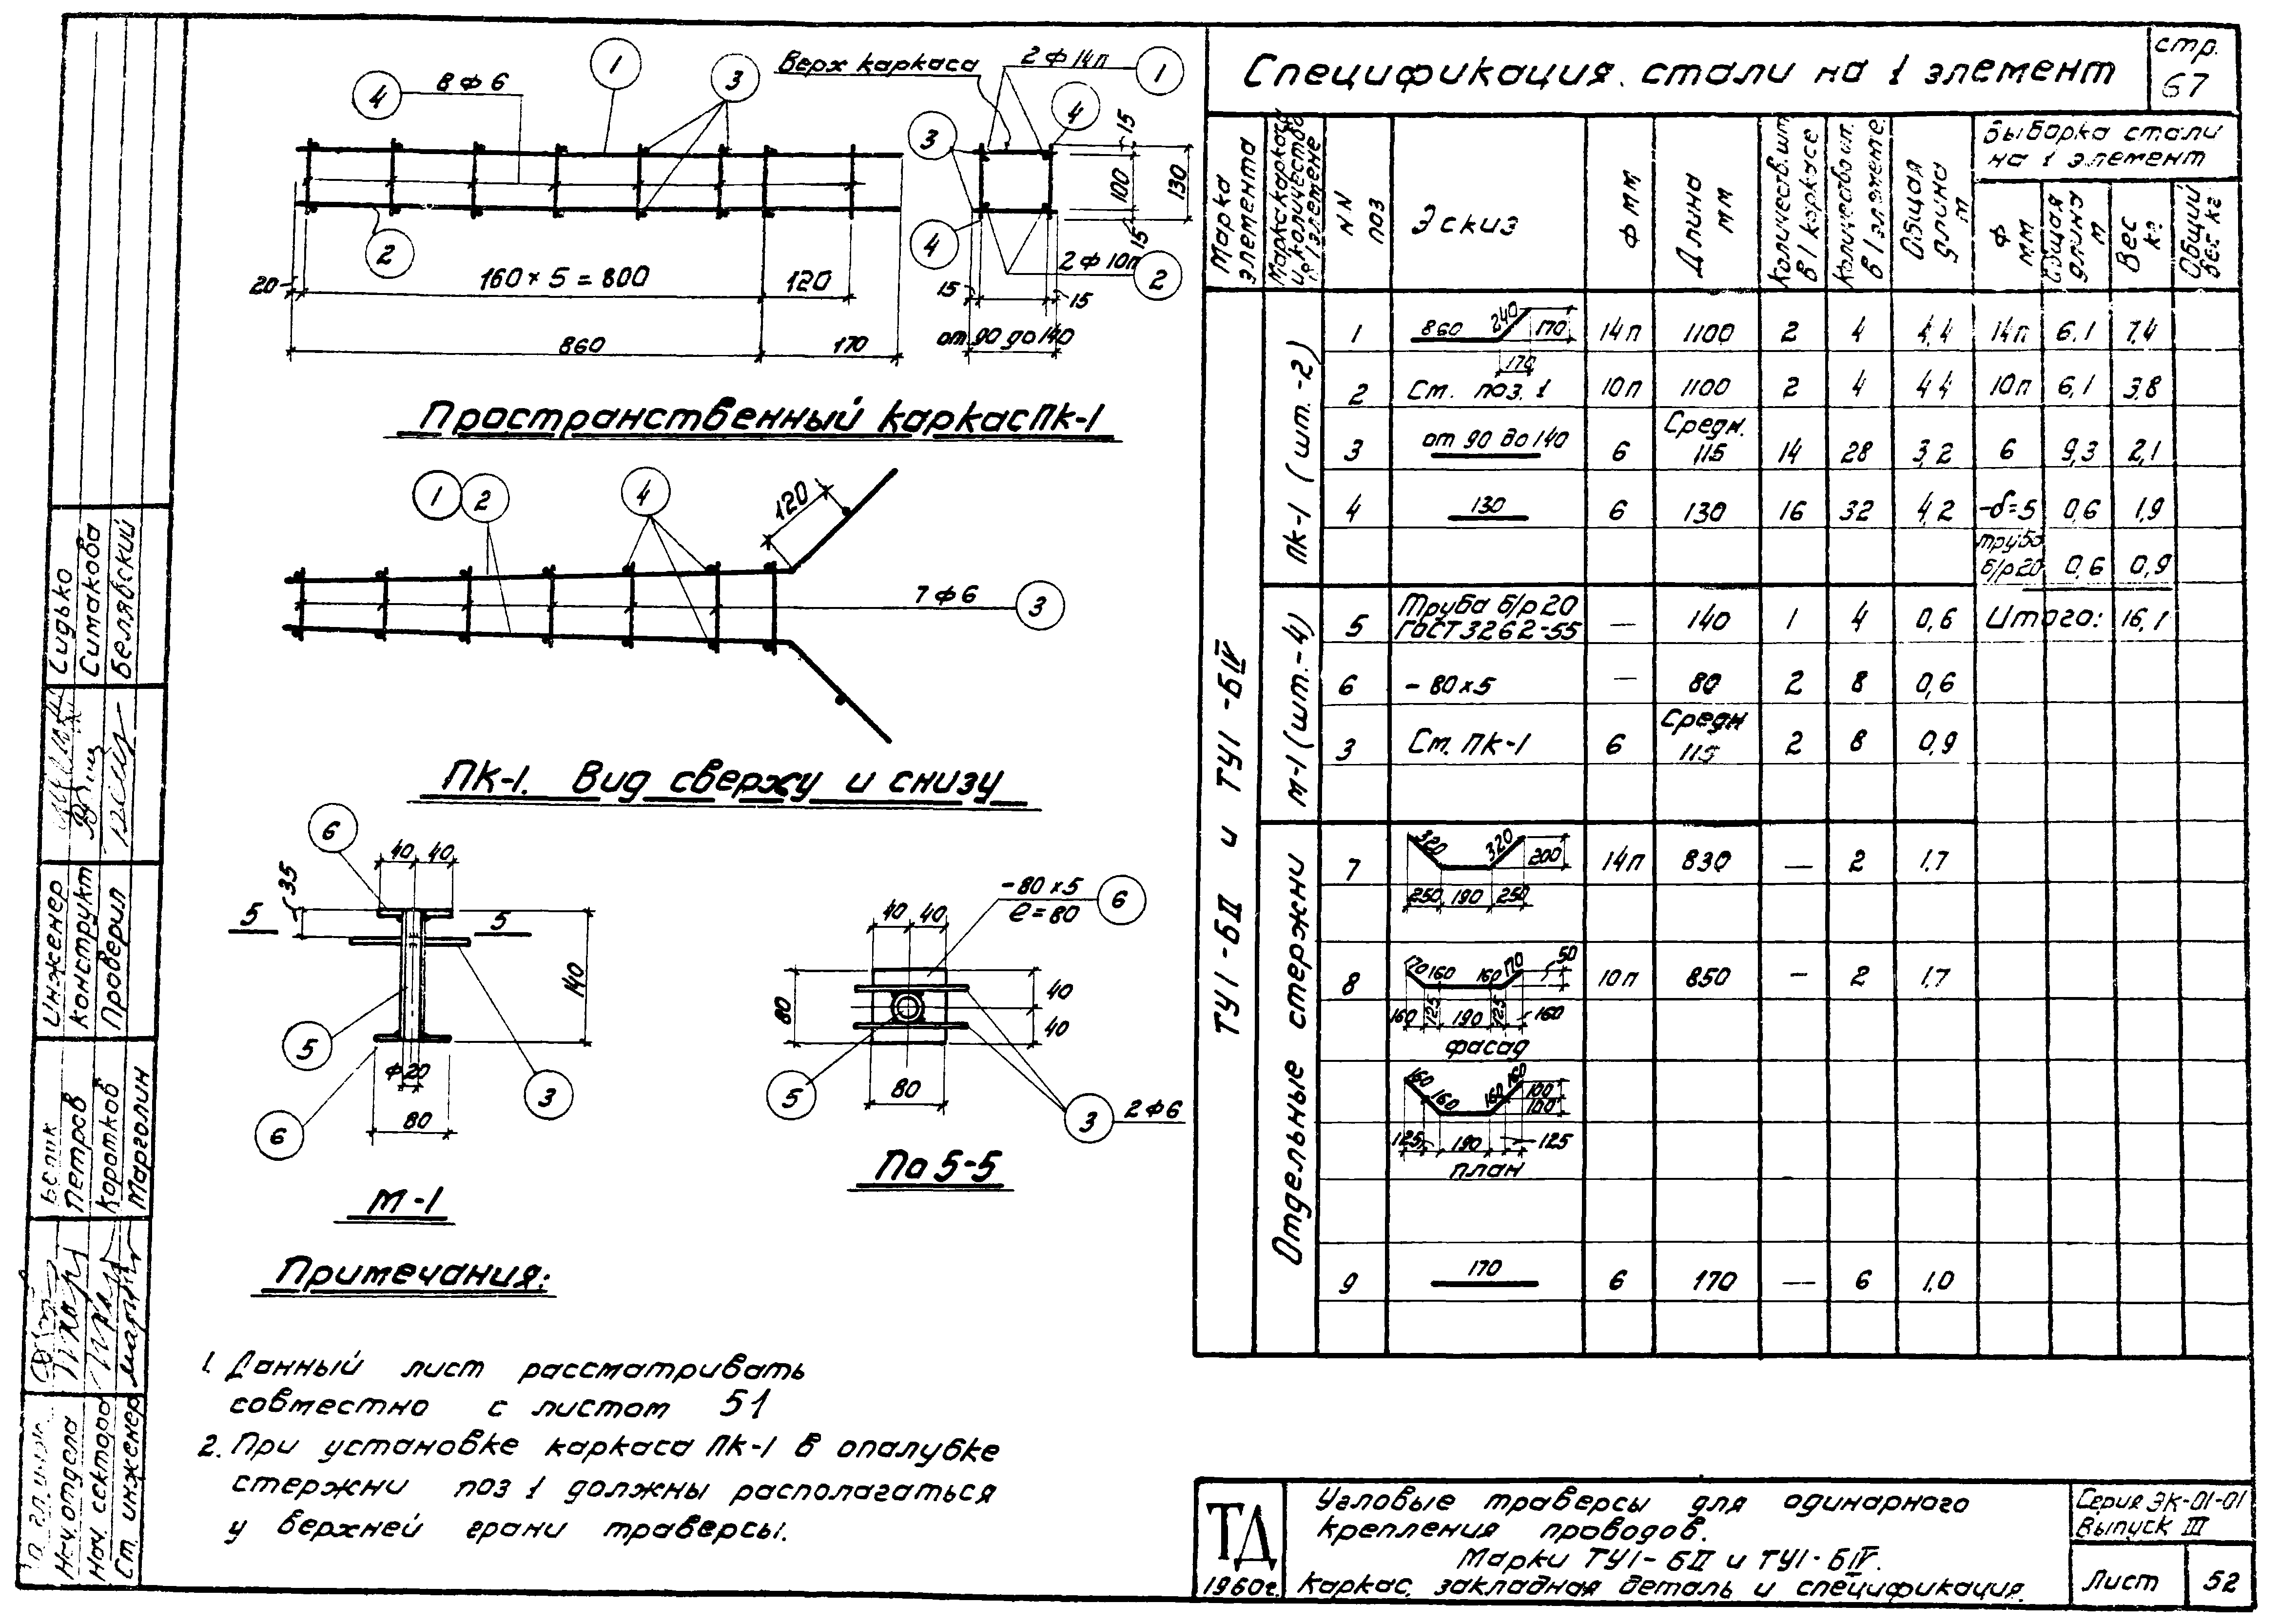 Верх каркаса
2ф14п
1
8ф6
4
1
3
1
4
3
2
4
2ф10п
2
15
100
130
15
20
160×5=800
120
15
15
860
170
от 90 до 140
Пространственный каркас ПК-1
1
2
4
120
7ф6
3
ПК-1. Вид сверху и снизу
6
40
40
35
5
5
140
5
ф20
3
6
80
М-1
-80×5
ℓ=80
6
40
40
80
40
40
5
80
3
2ф6
По 5-5
Примечания:
1. Данный лист рассматривать
совместно с листом 51
2. При установке каркаса ПК-1 в опалубке
стержни поз 1 должны располагаться
у верхней грани траверсы.
Спецификация стали на 1 элемент
стр.
67
Марка элемента
Марка каркаса и количество в 1 элементе
NN поз
Эскиз
ф мм
Длина мм
Количеств. шт. в 1 каркасе
Количество шт. в 1 элементе
Общая длина м
Выборка стали
на 1 элемент
ф мм
Общая длина м
Вес кг
Общий вес кг
ТУ1-БII и ТУ1-БIV
ПК-1 (шт.-2)
1 860 240 170 170 14п 1100 2 4 4,4 14п 6,1 7,4
2 См. поз. 1 10п 1100 2 4 4,4 10п 6,1 3,8
3 от 90 до 140 6 Средн. 115 14 28 3,2 6 9,3 2,1
4 130 6 130 16 32 4,2 -δ=5 0,6 1,9
труба
б/р20 0,6 0,9
М-1 (шт.-4)
5 Труба б/р 20 ГОСТ 3262-55 — 140 1 4 0,6 Итого: 16,1
6 -80×5 — 80 2 8 0,6
3 См. ПК-1 6 Средн 115 2 8 0,9
Отдельные стержни
7 320 320 200 250 190 250 14п 830 — 2 1,7
8 170 160 160 170 50 160 125 190 125 160 10п 850 — 2 1,7
фасад
160 160 160 160 100 100
125 190 125
план
9 170 6 170 — 6 1,0
ТД
1960г.
Угловые траверсы для одинарного
крепления проводов.
Марки ТУ1-БII и ТУ1-БIV.
Каркас, закладная деталь и спецификация.
Серия ЭК-01-01
Выпуск III
Лист
52
Сидько
Симакова
Белявский
Инженер
Конструкт
Проверил
Петров
Коротков
Марголин
Нач. отдела
Нач. сектора
Ст. инженер